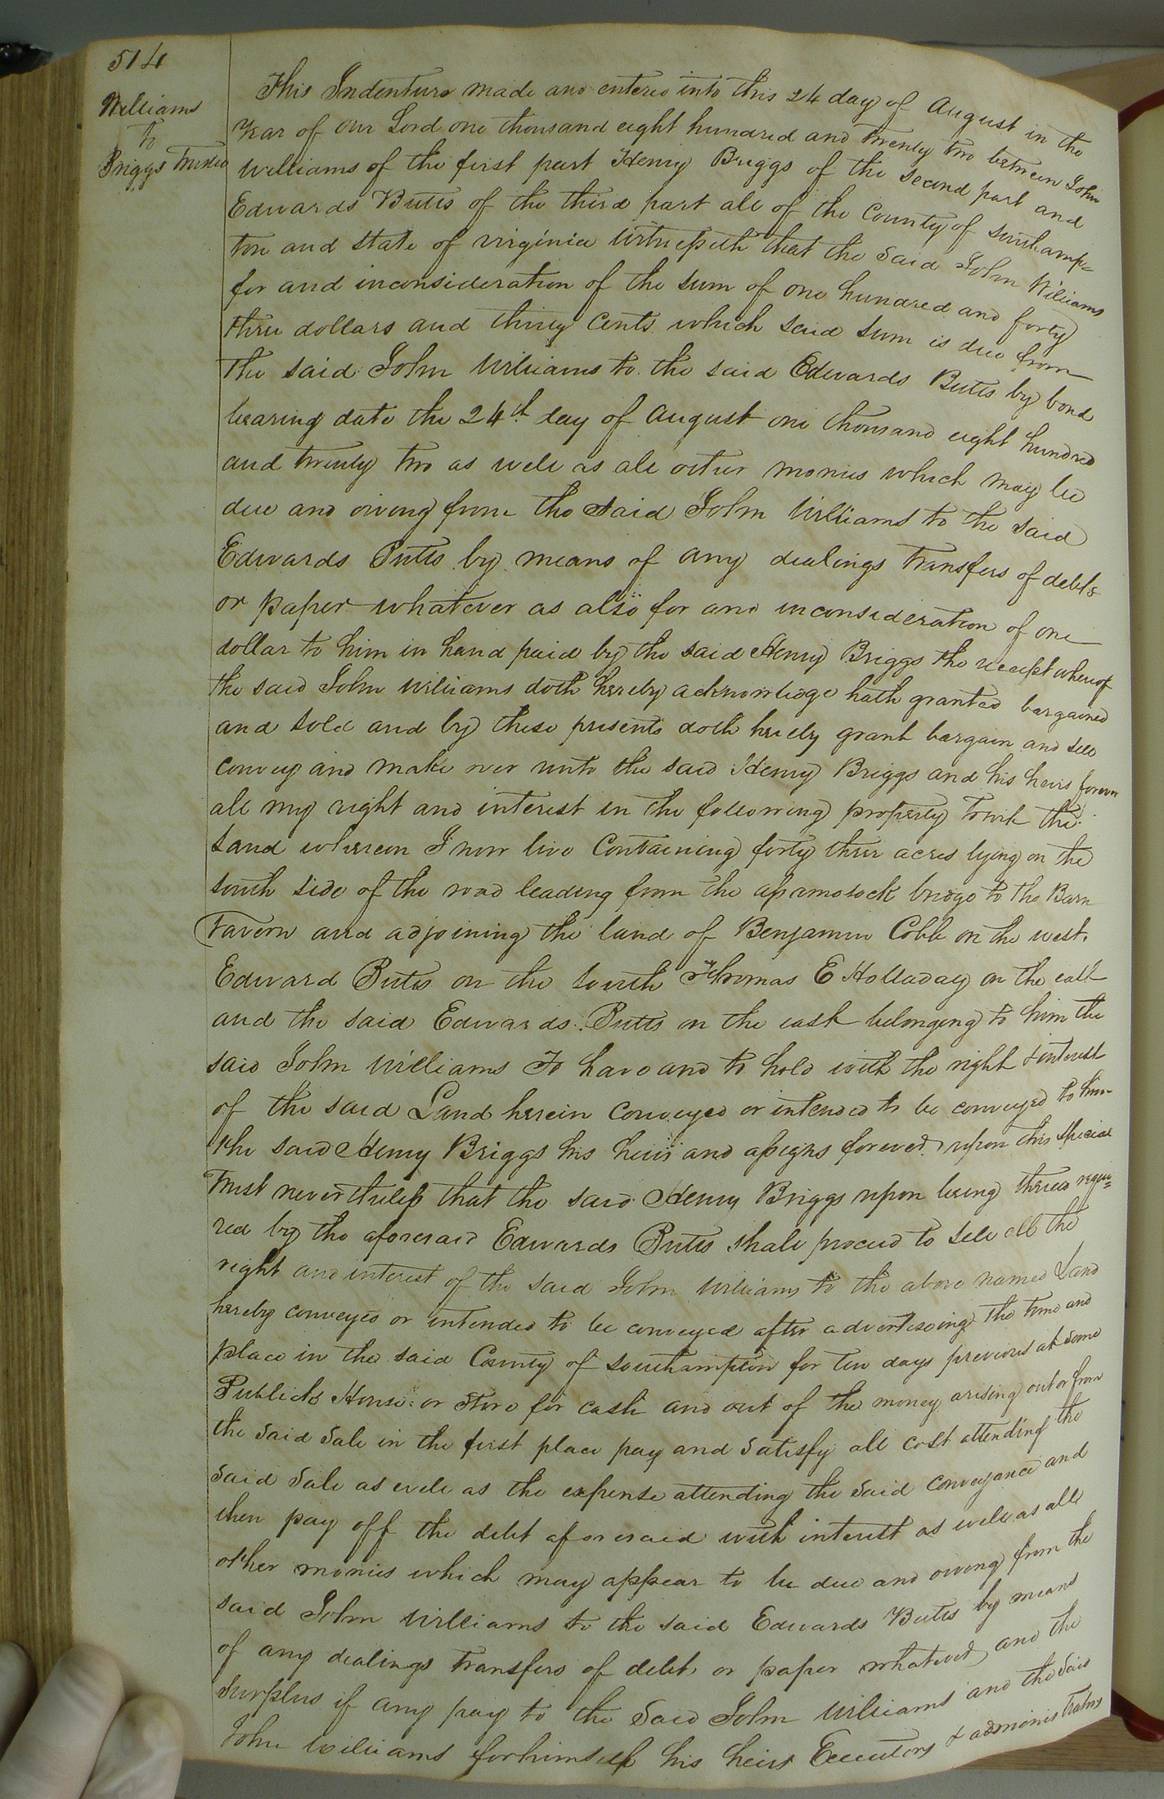 514
Williams
to
Briggs Trustee
This Indenture made and entered into this 24 day of August in the
Year of our Lord one thousand eight hundred and twenty two between John
Williams of the first part Henry Briggs of the second part and
Edwards Butts of the third part all of the County of Southamp=
ton and State of virginia Witnesseth that the said John Williams
for and inconsideration of the sum of one hundred and forty
three dollars and thirty Cents which said sum is due from
the said John Williams to the said Edwards Butts by bond
bearing date the 24th day of August one thousand eight hundred
and twenty two as well as all other monies which may be
due and owing from the said John Williams to the said
Edwards Butts by means of any dealings transfers of debts
or paper whatever as also for and inconsideration of one
dollar to him in hand paid by the said Henry Briggs the receipt whereof
the said John Williams doth hereby acknowledge hath granted bargained
and sold and by these presents doth hereby grant bargain and sell
convey and make over unto the said Henry Briggs and his heirs forever
all my right and interest in the following property towit the
Land whereon I now live Containing forty three acres lying on the
south side of the road leading from the apamosock bridge to the Barn
Tavern and adjoining the land of Benjamin Cobb on the west.
Edward Butts on the South Thomas E Holladay on the east
and the said Edwards Butts on the east belonging to him the
said John Williams To have and to hold with the right & interest
of the said Land herein conveyed or intended to be conveyed to him
the said Henry Briggs his heirs and assigns forever upon this special
Trust nevertheless that the said Henry Briggs upon being thereto requi=
red by the aforesaid Edwards Butts shall proceed to sell all the
right and interest of the said John Williams to the above named Land
hereby conveyed or intended to be conveyed after advertiseing the time and
place in the said County of Southampton for ten days previous at some
Publick House or Store for cash and out of the money arising out or from
the said Sale in the first place pay and satisfy all cost attending the
said Sale as well as the expense attending the said conveyance and
then pay off the debt aforesaid with interest as well as all
other monies which may appear to be due and owing from the
said John Williams to the said Edwards Butts by means
of any dealings transfers of debts or paper whatever and the
surplus if any pay to the Said John Williams and the said
John Williams forhimself his heirs Executors & administrators